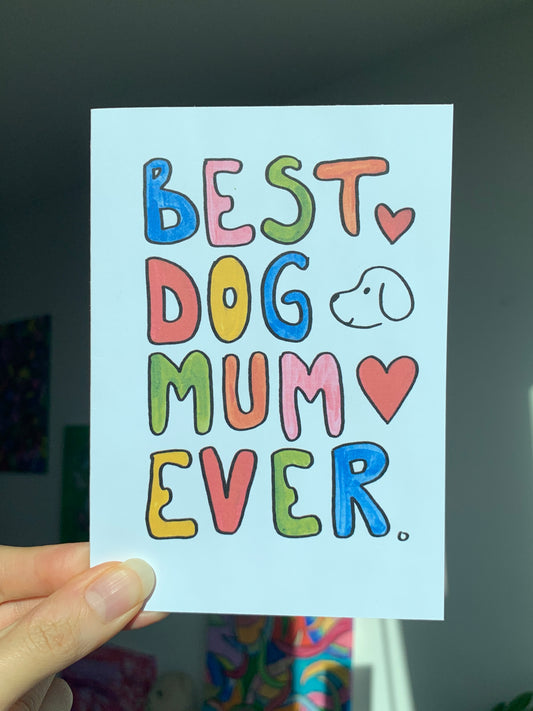 BEST
DOG
MUM
EVER.